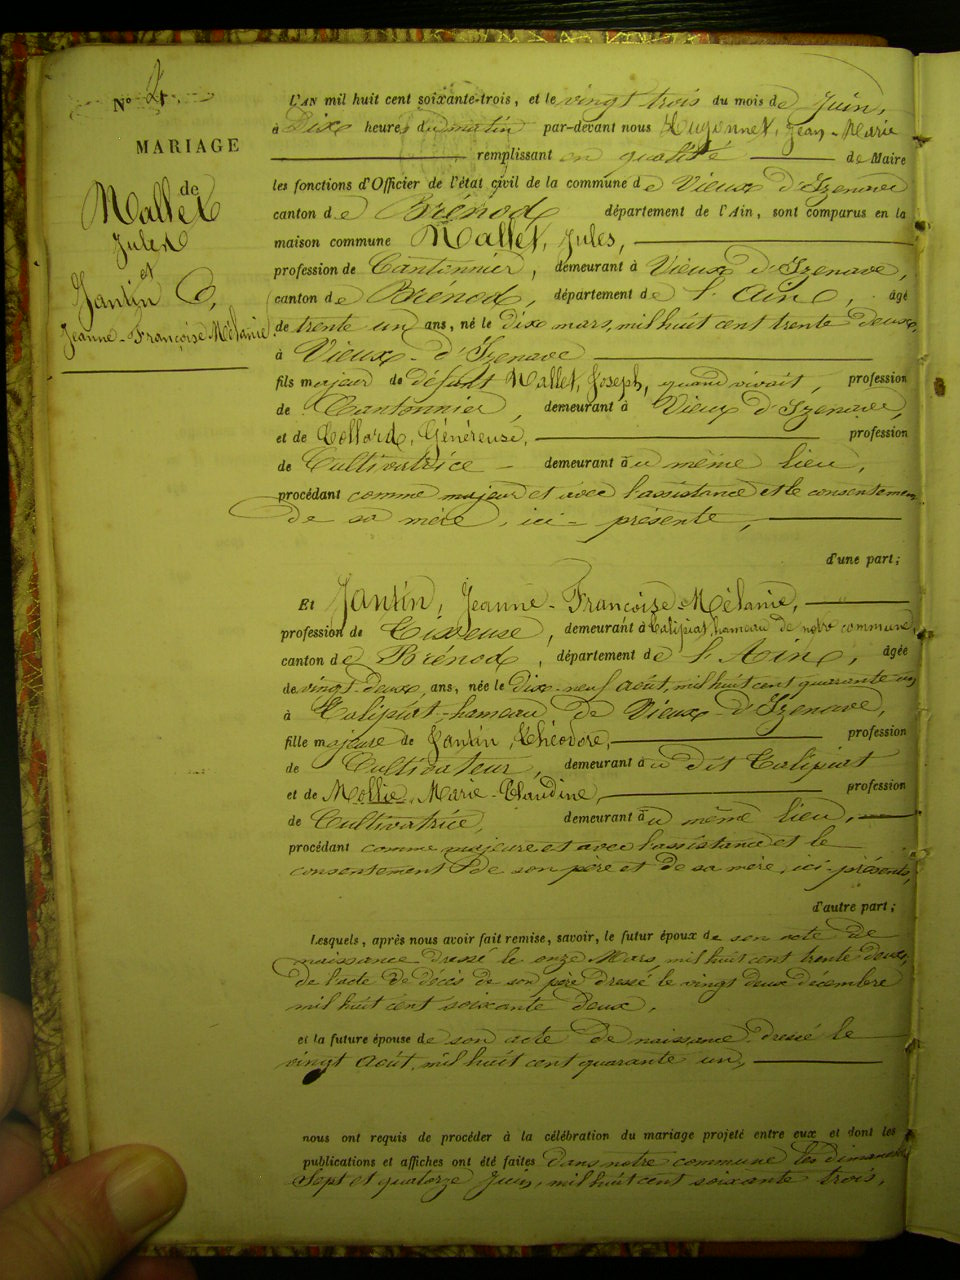 N° 4.
MARIAGE
de
Mallet
Jules
et
Jantin
Jeanne-Françoise Mélanie
L'AN mil huit cent soixante-trois, et le vingt trois du mois de Juin,
à Dix heures du matin par-devant nous Hugonnet, Jean-Marie
remplissant en qualité de Maire
les fonctions d'Officier de l'état civil de la commune de Vieux d'Izenave
canton de Brénod département de l'Ain, sont comparus en la
maison commune Mallet, Jules,
profession de Cantonnier, demeurant à Vieux d'Izenave,
canton de Brénod, département de l'Ain, âgé
de trente un ans, né le dix mars, mil huit cent trente deux,
à Vieux-d'Izenave
fils majeur de défunt Mallet, Joseph, quand vivait, profession
de Cantonnier, demeurant à Vieux d'Izenave,
et de Collard, Généreuse, profession
de Cultivatrice demeurant au même lieu,
procédant comme majeur et avec l'assistance et le consentement
de sa mère, ici-présente,
d'une part;
Et Jantin, Jeanne-Françoise-Mélanie,
profession de Tisseuse, demeurant à Talipiat, hameau de notre commune,
canton de Brénod, département de l'Ain, âgée
de vingt-deux ans, née le dix-neuf août, mil huit cent quarante un
à Talipiat-hameau de Vieux-d'Izenave,
fille majeure de Jantin, Théodore, profession
de Cultivateur, demeurant au dit Talipiat
et de Mollie, Marie-Claudine, profession
de Cultivatrice, demeurant au même lieu,
procédant comme majeure et avec l'assistance et le
consentement de son père et de sa mère, ici-présents,
d'autre part;
Lesquels, après nous avoir fait remise, savoir, le futur époux de son acte de
naissance dressé le onze Mars, mil huit cent trente deux,
de l'acte de décès de son père dressé le vingt deux décembre
mil huit cent soixante deux.
et la future épouse de son acte de naissance dressé le
vingt août, mil huit cent quarante un,
nous ont requis de procéder à la célébration du mariage projeté entre eux et dont les
publications et affiches ont été faites dans notre commune les dimanches
Sept et quatorze Juin, mil huit cent soixante trois,